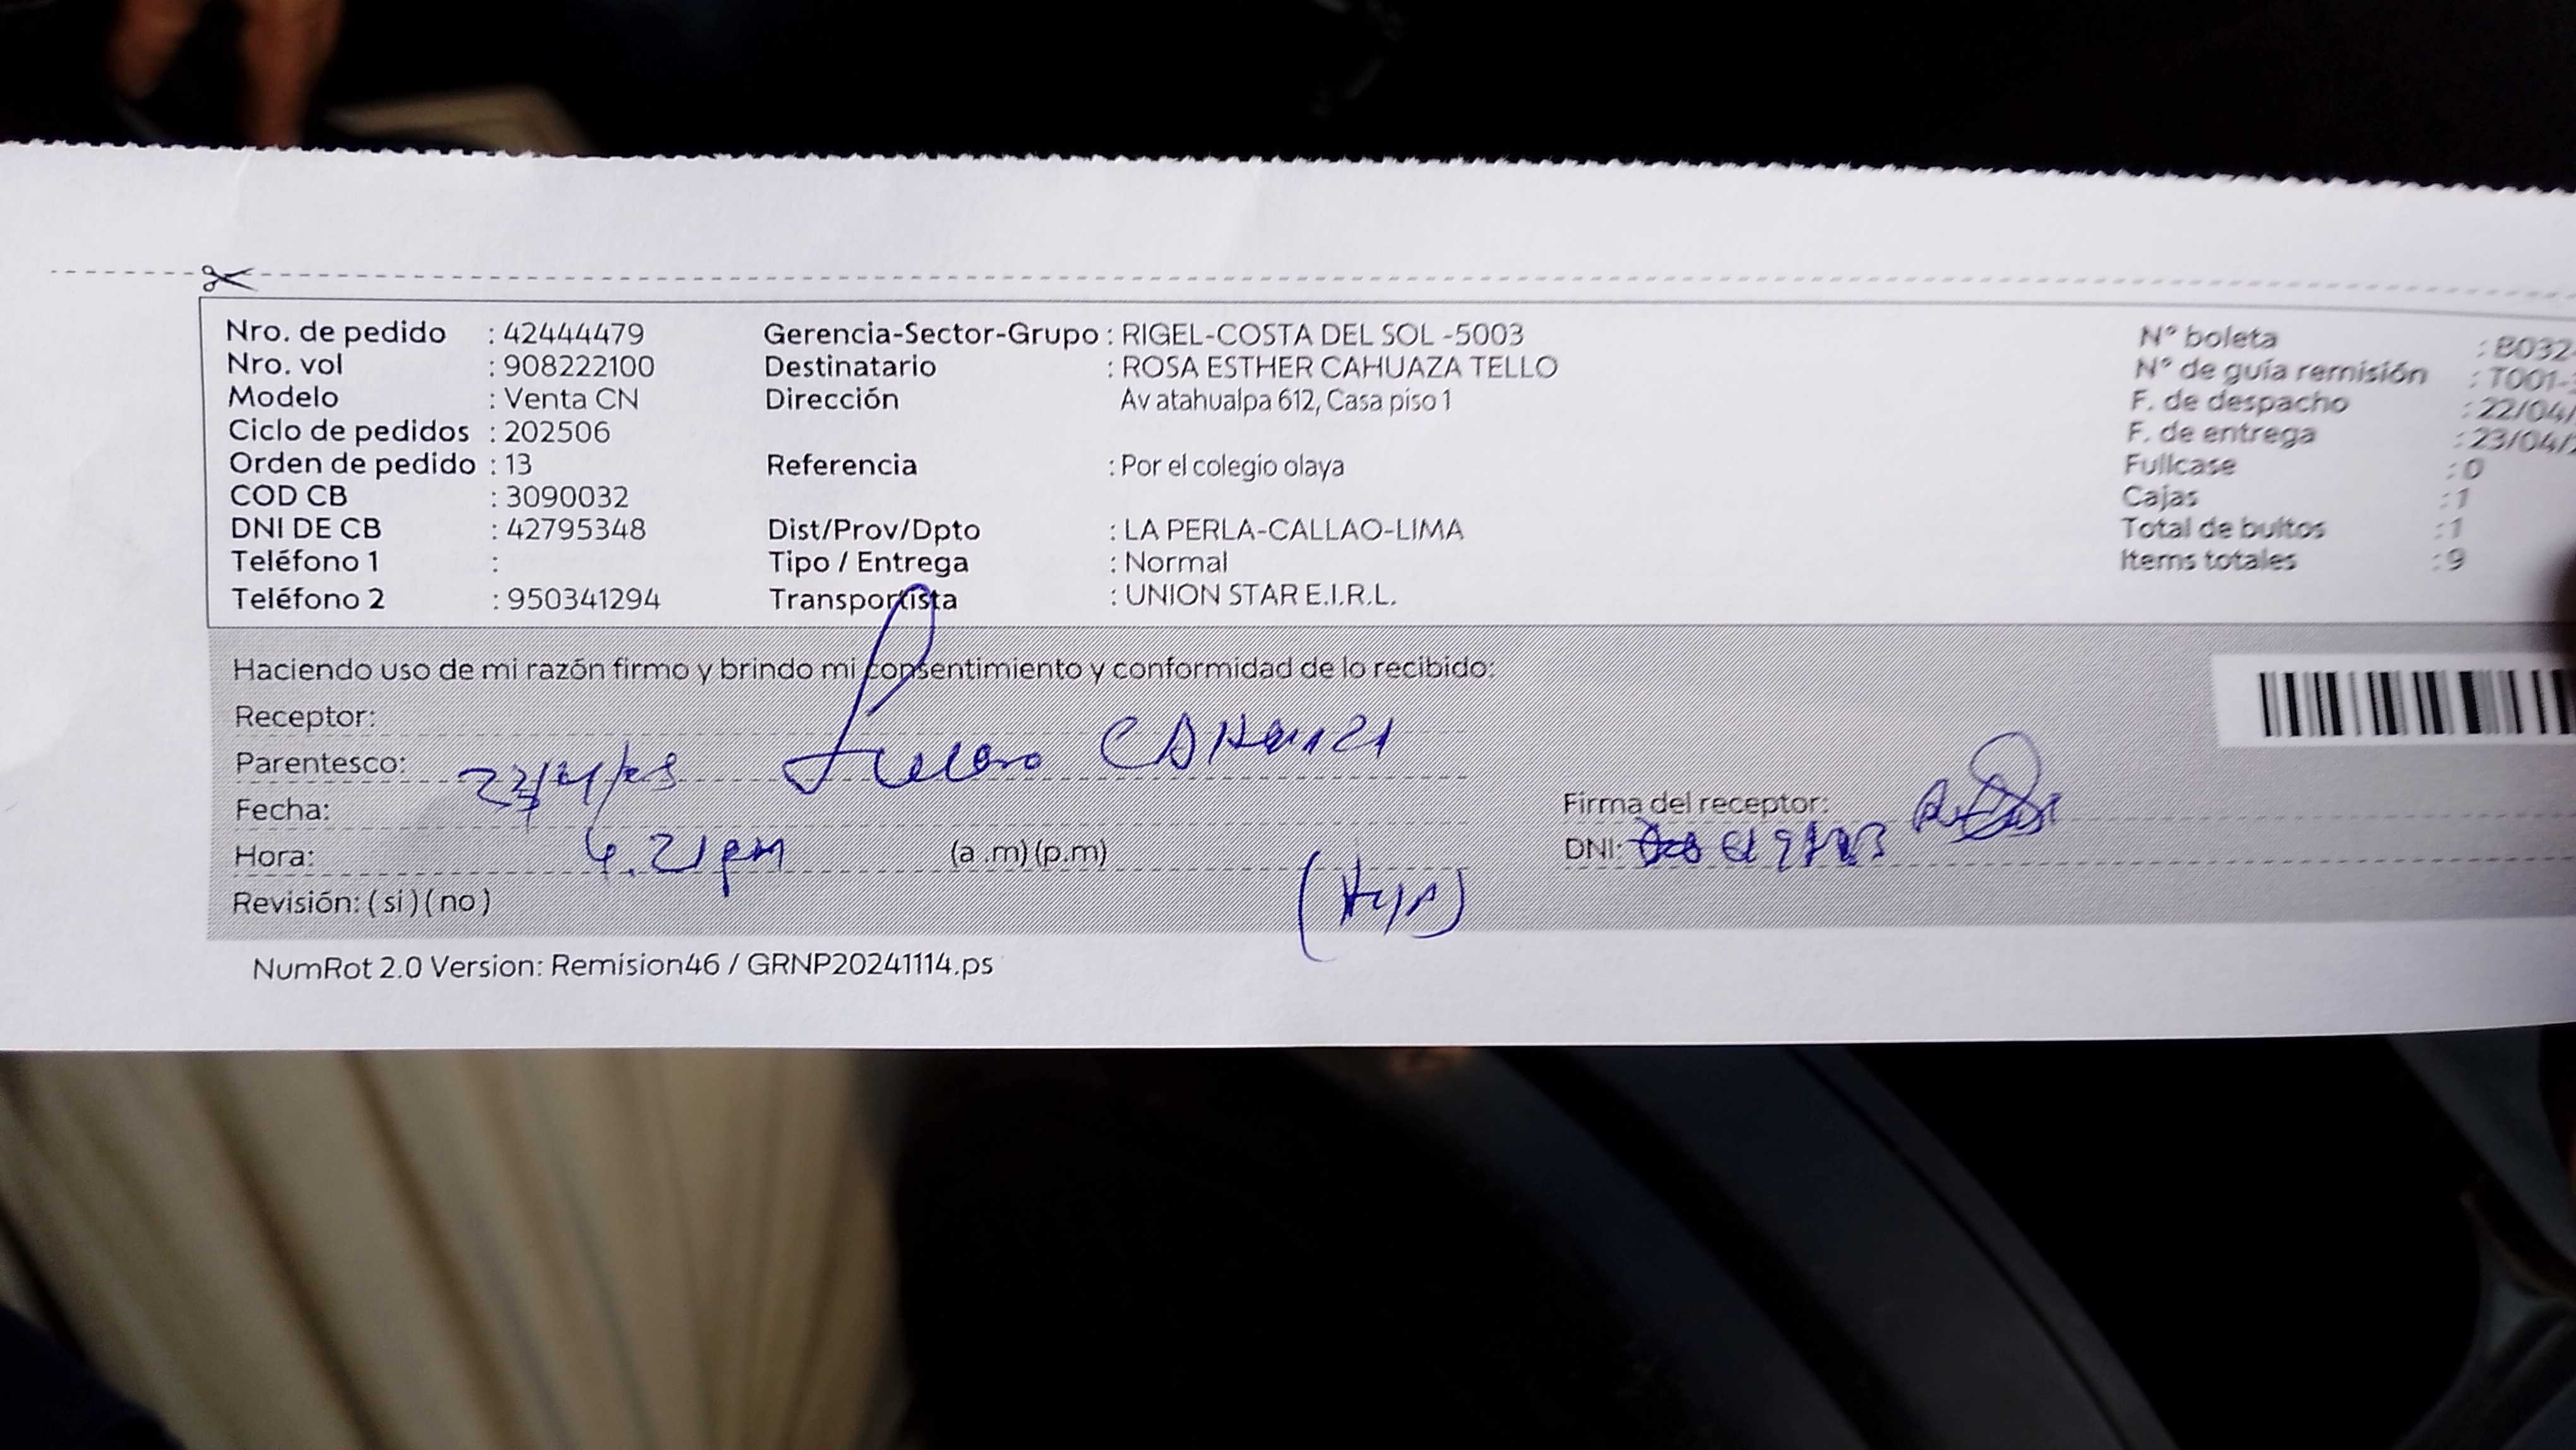 Nro. de pedido : 42444479 Gerencia-Sector-Grupo : RIGEL-COSTA DEL SOL -5003 N° boleta : B032-
Nro. vol : 908222100 Destinatario : ROSA ESTHER CAHUAZA TELLO N° de guía remisión : T001-
Modelo : Venta CN Dirección Av atahualpa 612, Casa piso 1 F. de despacho : 22/04/
Ciclo de pedidos : 202506 F. de entrega : 23/04/
Orden de pedido : 13 Referencia : Por el colegio olaya Fullcase : 0
COD CB : 3090032 Cajas : 1
DNI DE CB : 42795348 Dist/Prov/Dpto : LA PERLA-CALLAO-LIMA Total de bultos : 1
Teléfono 1 : Tipo / Entrega : Normal Items totales : 9
Teléfono 2 : 950341294 Transportista : UNION STAR E.I.R.L.
Haciendo uso de mi razón firmo y brindo mi consentimiento y conformidad de lo recibido:
Receptor:
Parentesco:
Fecha: Firma del receptor:
Hora: 4.21pm (a .m) (p.m) DNI:
Revisión: ( si ) ( no )
NumRot 2.0 Version: Remision46 / GRNP20241114.ps